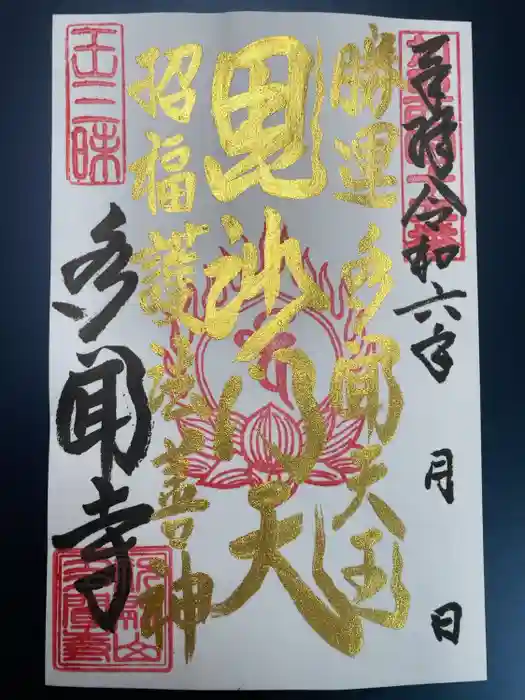 吉祥令和六年 月 日
勝運多聞天王
毘沙門天
招福護法善神
王三昧
多聞寺